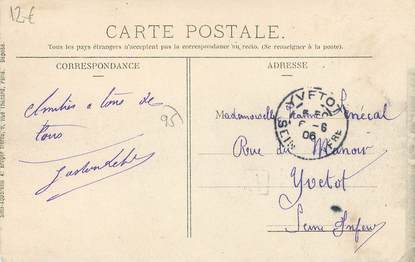 12€
CARTE POSTALE.
Tous les pays étrangers n'acceptent pas la correspondance au recto. (Se renseigner à la poste).
CORRESPONDANCE
ADRESSE
Amitiés à tous de
tous
95
YVETOT
06
SEINE
Mademoiselle Sénécal
Rue du Manoir
Yvetot
Seine Infer